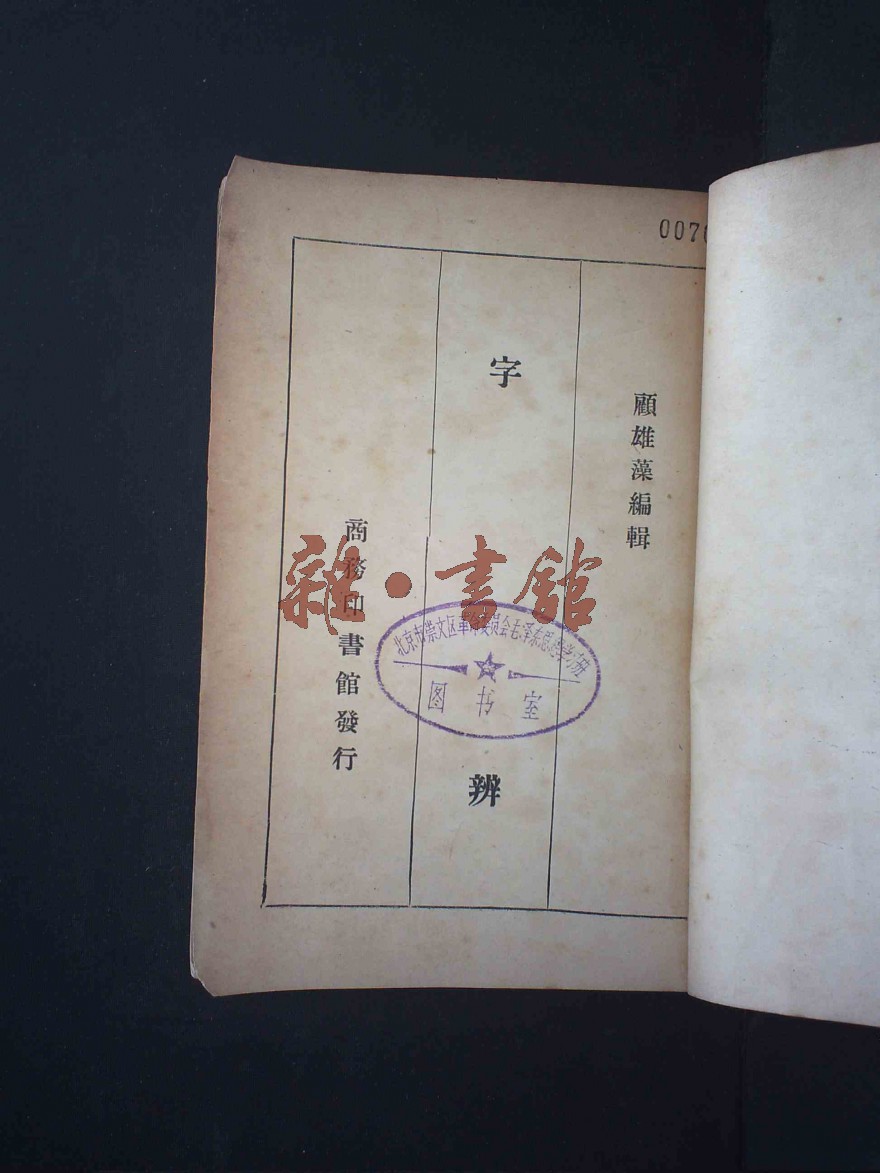 007
顧雄藻編輯
字辨
商務印書館發行
雜·書館
北京市崇文区革命委员会毛泽东思想学习班
图书室